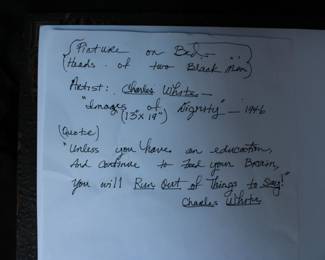 {Picture on Bed -
(Heads of two Black Men)
Artist: Charles White -
"Images of Dignity" - 1946
(13" x 19")
(Quote)
"Unless you have an education,
And continue to feed your Brain,
You will Run Out of Things to Say!"
Charles White